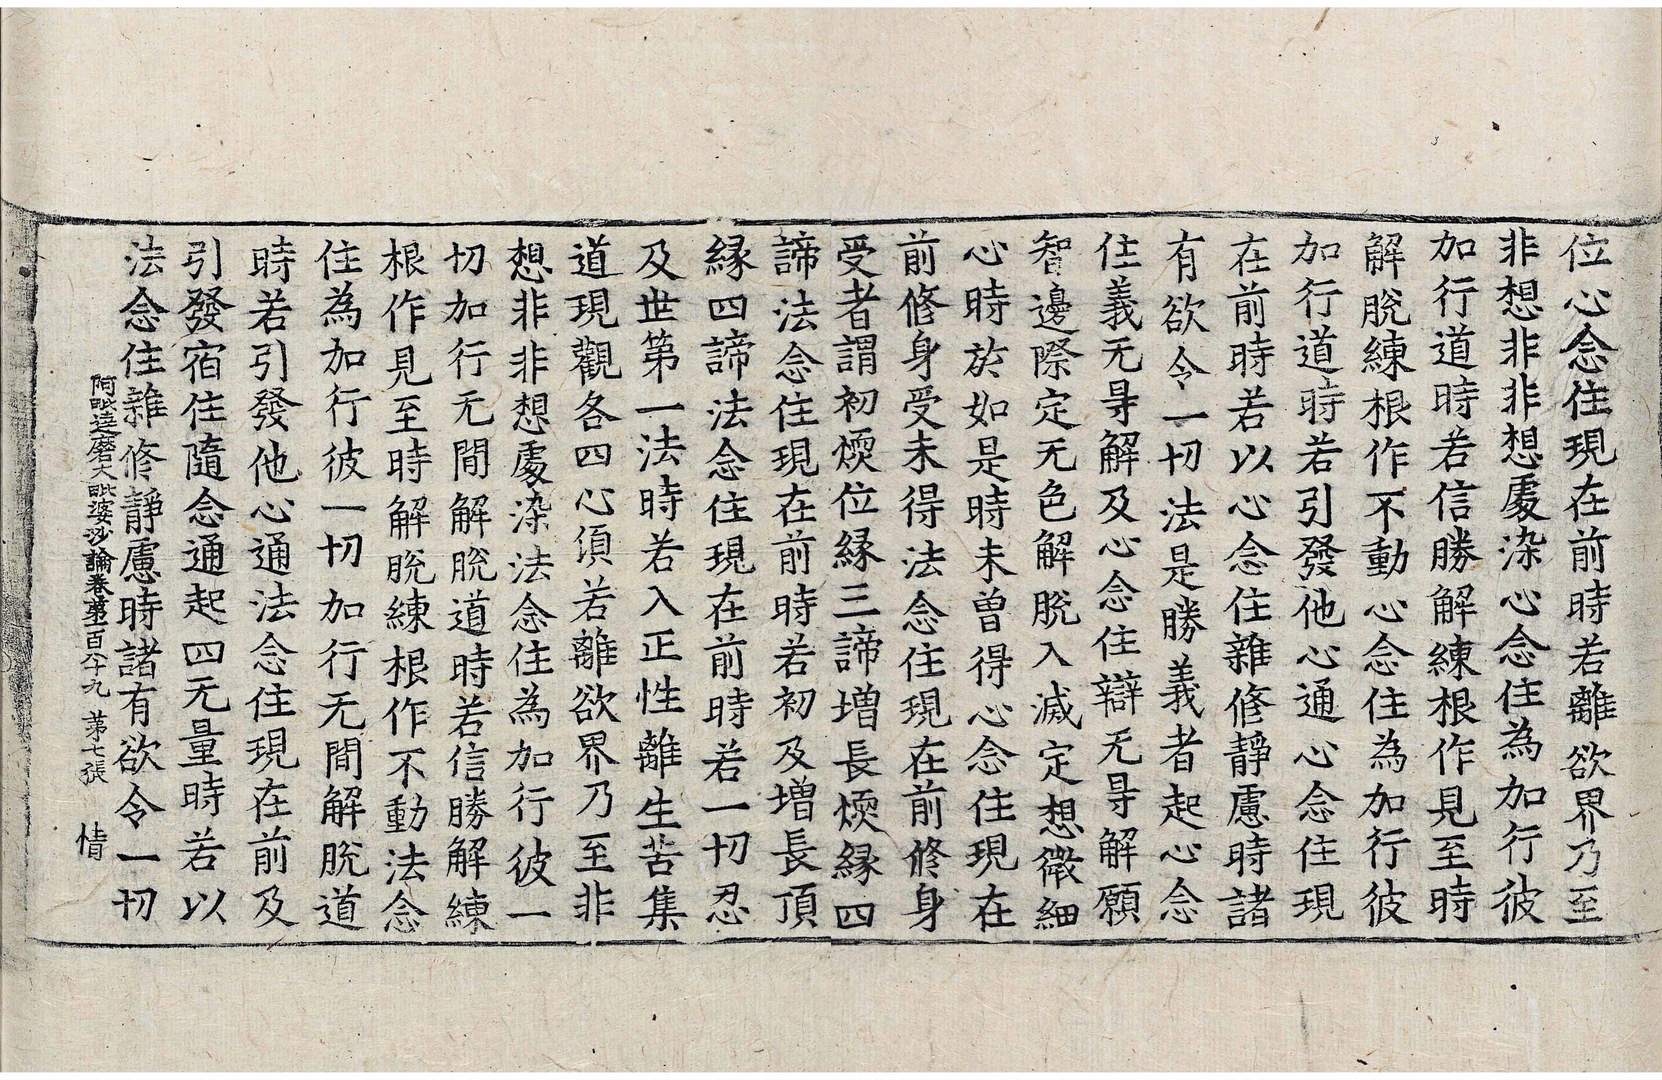 位心念住現在前時若離欲界乃至
非想非非想處染心念住為加行彼
加行道時若信勝解練根作見至時
解脫練根作不動心念住為加行彼
加行道時若引發他心通心念住現
在前時若以心念住雜修靜慮時諸
有欲令一切法是勝義者起心念
住義无㝵解及心念住辯无㝵解願
智邊際定无色解脫入滅定想微細
心時於如是時未曾得心念住現在
前修身受未得法念住現在前修身
受者謂初煗位緣三諦增長煗緣四
諦法念住現在前時若初及增長頂
緣四諦法念住現在前時若一切忍
及世第一法時若入正性離生苦集
道現觀各四心頃若離欲界乃至非
想非非想處染法念住為加行彼一
切加行无間解脫道時若信勝解練
根作見至時解脫練根作不動法念
住為加行彼一切加行无間解脫道
時若引發他心通法念住現在前及
引發宿住隨念通起四无量時若以
法念住雜修靜慮時諸有欲令一切
阿毗達磨大毗婆沙論卷苐一百八十九 苐七張 情